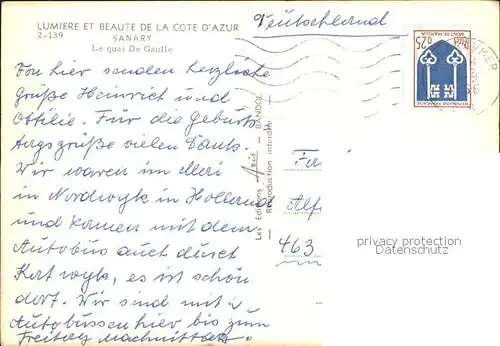 LUMIERE ET BEAUTE DE LA COTE D'AZUR
2-139 SANARY
Le quai De Gaulle
Deutschland
Von hier senden herzliche
grüße Heinrich und
Ottilie. Für die Geburts
tagsgrüße vielen Dank.
Wir waren im Mai
in Nordwyk in Holland
und kommen mit dem
Autobus auch durch
wyk, es ist schön
dort. Wir sind mit
Autobussen hier bis zum
Freitag
Les Editions Aris - BANDOL
Reproduction interdite
0,25
MONT DE MARSAN
REPUBLIQUE FRANCAISE
MER
Alf
463
privacy protection
Datenschutz